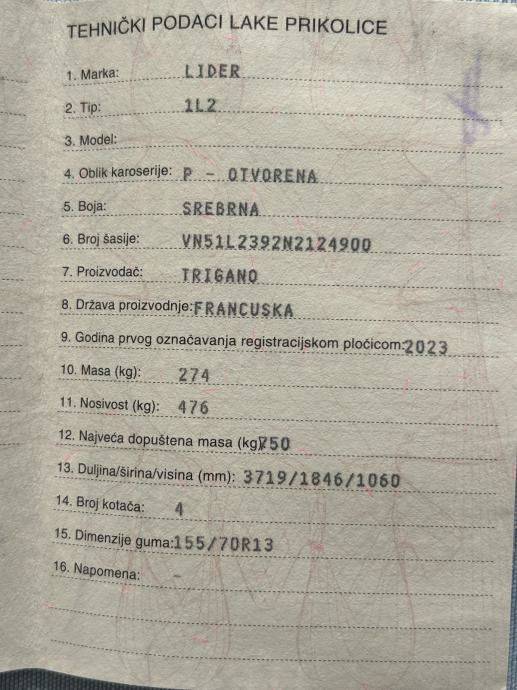 TEHNIČKI PODACI LAKE PRIKOLICE
1. Marka: LIDER
2. Tip: 1L2
3. Model:
4. Oblik karoserije: P - OTVORENA
5. Boja: SREBRNA
6. Broj šasije: VN51L2392N2124900
7. Proizvođač: TRIGANO
8. Država proizvodnje: FRANCUSKA
9. Godina prvog označavanja registracijskom pločicom: 2023
10. Masa (kg): 274
11. Nosivost (kg): 476
12. Najveća dopuštena masa (kg) 750
13. Duljina/širina/visina (mm): 3719/1846/1060
14. Broj kotača: 4
15. Dimenzije guma: 155/70R13
16. Napomena: -